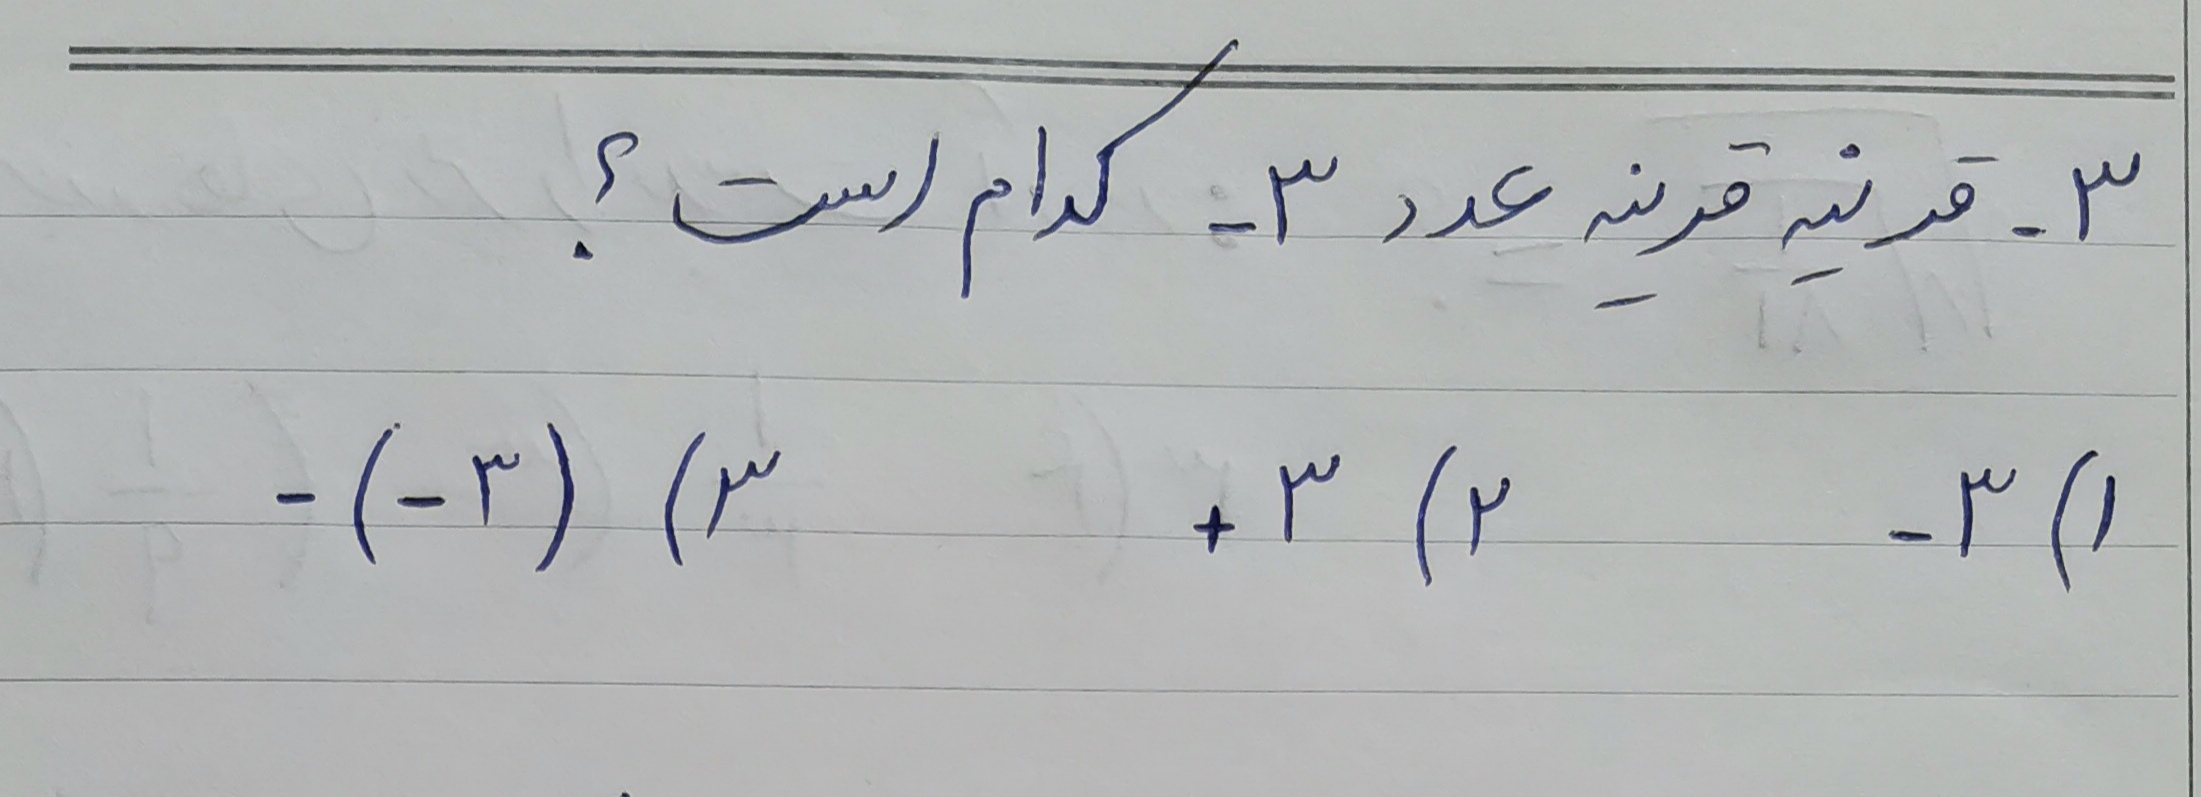 ۳- قرینهِ قرینهِ عدد ۳- کدام است؟
۱) ۳- ۲) ۳+ ۳) (۳-)-